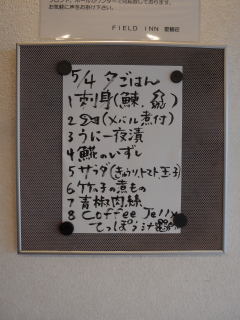 お気軽に声をお掛け下さい。
FIELD INN
5/4 夕ごはん
1 刺身(鰊、
2 (メバル煮付)
3 うに一夜漬
4 鰊のいずし
5 サラダ(きゅうり、トマト、玉子)
6 竹の子の煮もの
7 青椒肉絲
8 Coffee Jelly
てっぽう汁